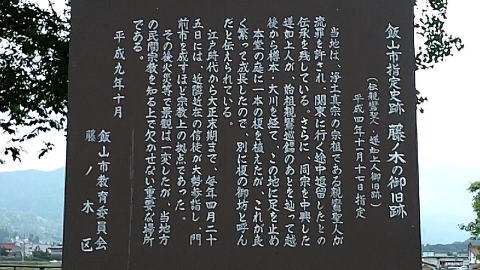 飯山市指定史跡 藤ノ木の御旧跡
(伝親鸞聖人・蓮如上人御旧跡)
平成四年十一月十七日指定
当地は、浄土真宗の宗祖である親鸞聖人が
流罪を許され、関東に行く途中逗留したとの
伝承を残している。さらに、同宗を中興した
蓮如上人が、始祖親鸞巡錫のあとを辿って越
後から樽本・大川を経て、この地に足を止め
本堂の庭に一本の榎を植えたが、これが良
く繁って成長したので、別に榎の御坊と呼ん
だと伝えられている。
江戸時代から大正末期まで、毎年四月二十
五日には、近隣近在の信徒が大勢参詣し、門
前市を成すほど宗教上の拠点であった。
その後火災等で景観は一変したが、当地方
の民間宗教を知る上で欠かせない重要な場所
である。
平成九年十月
飯山市教育委員会
藤ノ木区